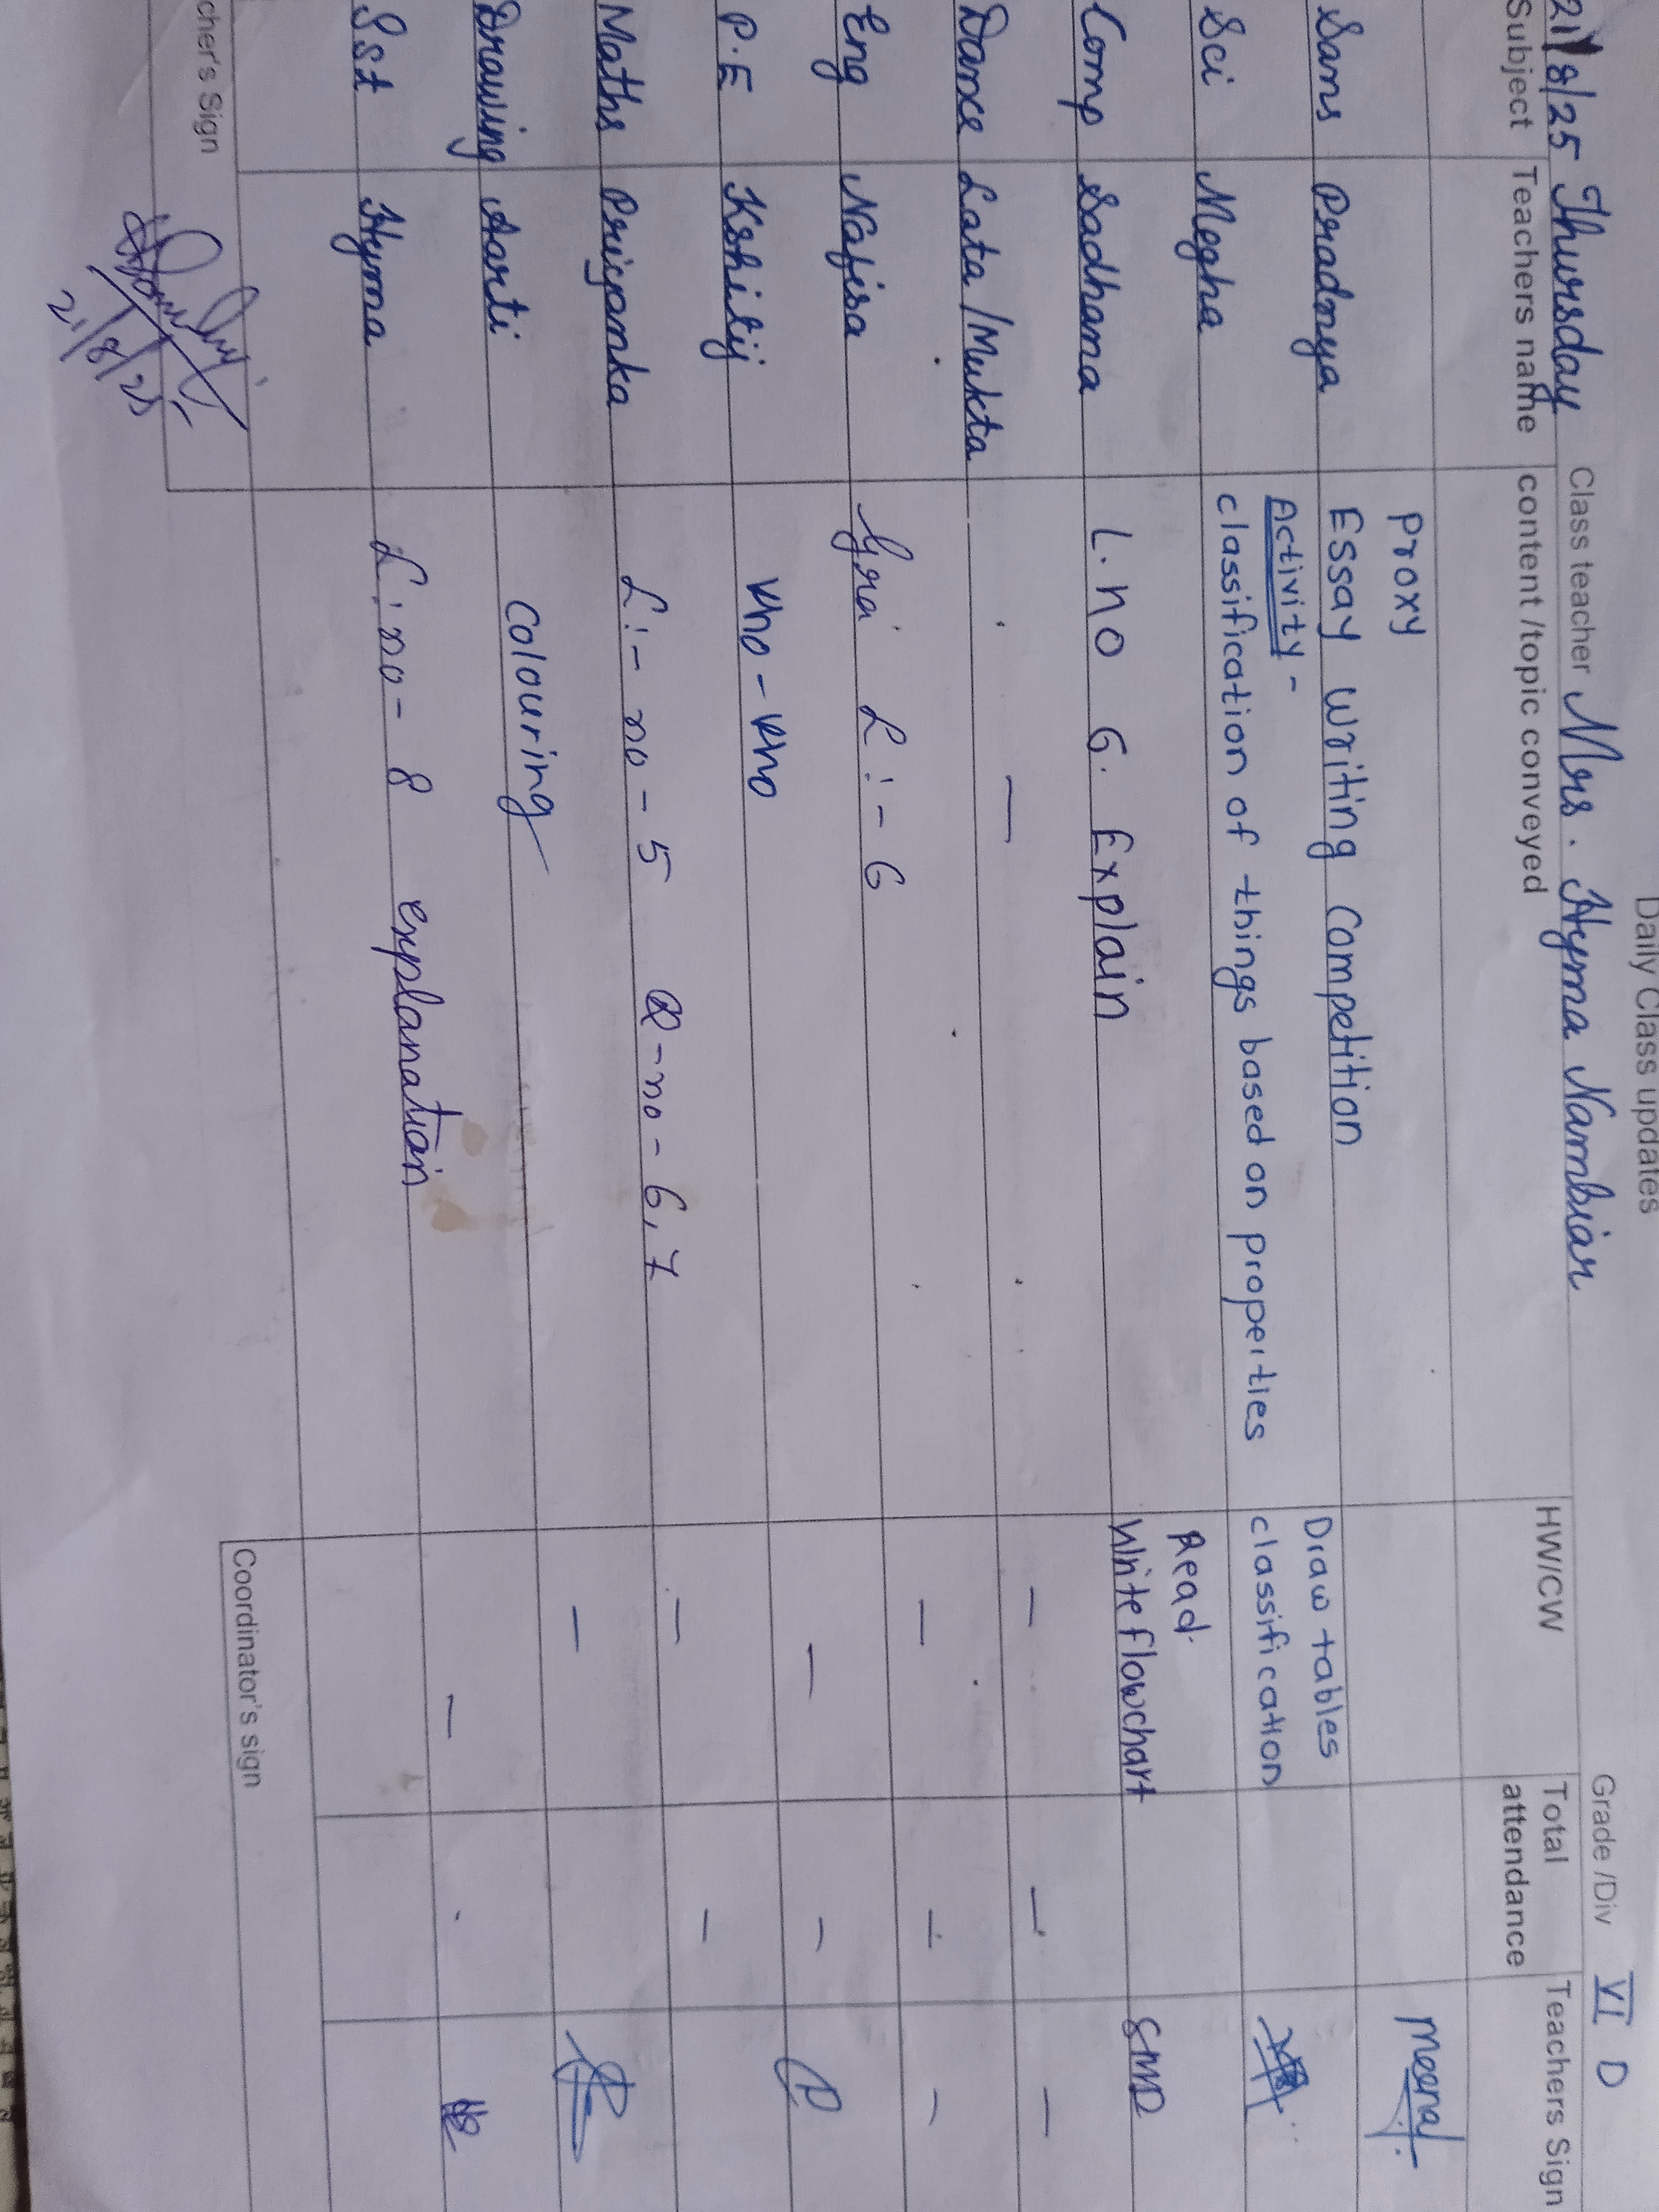 Daily Class updates
21/8/25 Thursday Class teacher Mrs. Hyma Nambiar Grade /Div VI D
Subject Teachers name content /topic conveyed HW/CW Total attendance Teachers Sign
Sans Pradnya Proxy Meenal
Essay Writing Competition
Sci Megha Activity - Draw tables
classification of things based on properties classification
Comp Sadhana L.no 6. Explain Read.
White flowchart SMD
Dance Lata /Mukta — — — —
Eng Nafisa Gra L:- 6 — — —
P.E Kshitij Kho-Kho — —
Maths Priyanka L:- no - 5 Q-no-6,7 — —
Drawing Aarti Colouring —
Sst Hyma L:no- 8 explanation —
cher's Sign Coordinator's sign
21/8/25